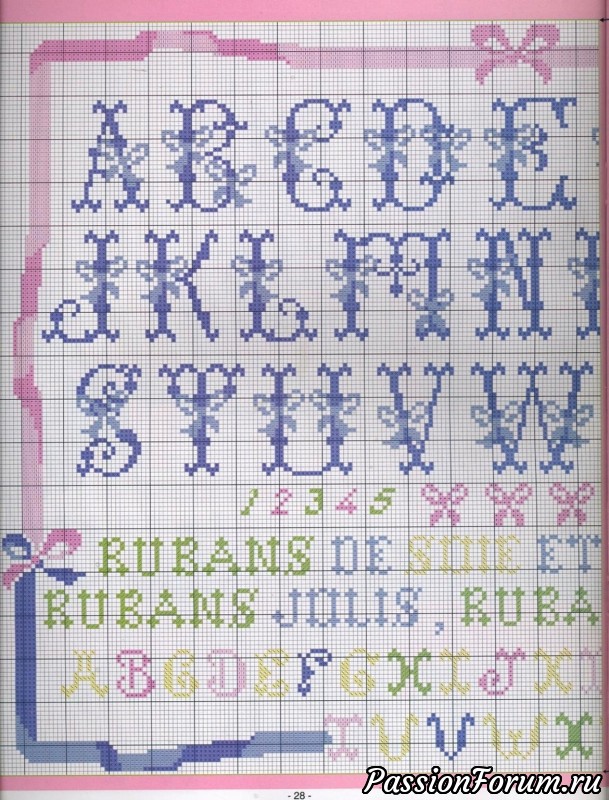 A B C D E
J K L M N
S T U V W
1 2 3 4 5
RUBANS DE SOIE ET
RUBANS JOLIS, RUBA
A B C D E F G H I J K
T U V W X
- 28 -
PassionForum.ru